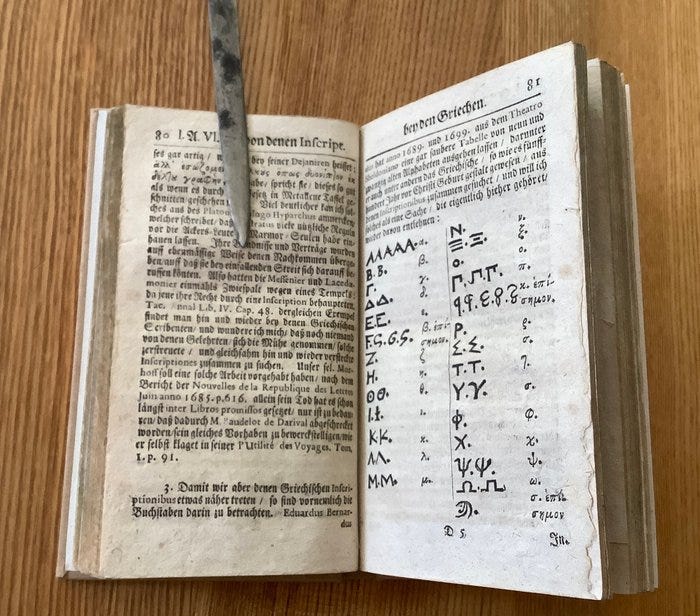 80 l. A. VI. von denen Inscript.
ses gar artig / bey seiner Dejaniren heisset;
als wenn es durch in Metallene Tafel ge-
schnitten / geschehen Viel deutlicher kan ich sol-
ches aus des Platon Dialogo Hyparchus anmercken /
welcher schreibet / daß nützliche Reguln
vor die Ackers-Leute Marmor / Seulen habe ein-
hauen lassen. Ihre Bündnisse und Verträge wurden
auff ebenmäßige Weise denen Nachkommen überge-
ben / auff daß sie bey einfallenden Streit sich darauff be-
ruffen könten. Also hatten die Messenier und Laceda-
monier einmahls Zwiespalt wegen eines Tempels;
da jene ihre Recht durch eine Inscription behaupteten.
Tac. Annal Lib. IV. Cap. 48. dergleichen Exempel
findet man hin und wieder bey denen Griechischen
Scribenten / und wundere ich mich / daß noch niemand
von denen Gelehrten / sich die Mühe genommen / solche
zerstreuete / und gleichsahm hin und wieder versteckte
Inscriptiones zusammen zu suchen. Unser sel. Mor-
hoff soll eine solche Arbeit vorgehabt haben / nach dem
Bericht der Nouvelles de la Republique des Lettres
Juin anno 1685. p. 616. allein sein Tod hat es schon
längst inter Libros promissos gesetzt / nur ist zu bedau-
ren / daß dadurch M. Baudelot de Darival abgeschreckt
worden / sein gleiches Vorhaben zu bewerckstelligen / wie
er selbst klaget in seiner l'Utilité des Voyages. Tom.
1. p. 91.
3. Damit wir aber denen Griechischen Inscri-
ptionibus etwas näher treten / so sind vornemlich die
Buchstaben darin zu betrachten. Eduardus Bernar-
dus
bey den Griechen. 81
hat anno 1689. und 1699. aus dem Theatro
Sheldoniano eine gar saubere Tabelle von neun und
zwantzig alten Alphabeten ausgehen lassen / darunter
er auch unter andern das Griechische / so wie es fünff-
hundert Jahr vor Christi Geburt gestalt gewesen / aus
denen Inscriptionibus zusammen gesuchet / und will ich
solches als eine Sache / die eigentlich hieher gehöret /
wieder davon entlehnen:
α.
B. B. β.
Γ. γ.
Δ Δ. δ.
E. E. ε.
F. ς. G. ς. β. ἐπί-
σημον.
Z. ζ
H. η.
Θθ. θ.
I. ɫ. ι.
K·K. κ.
Λ.Λ. λ.
M. M. μ.
N. ν.
Ξ. ξ.
O. ο.
Γ. Π. Γ. π.
κ. ἐπί-
σημον.
Ρ. ϱ.
Σ. Σ. σ.
T. T. ῃ.
Υ. Υ. σ.
Φ. φ.
X. χ.
Ψ. Ψ. ψ.
Ω. Ω. ω.
σ. ἐπί.
σημον
D 5 In.